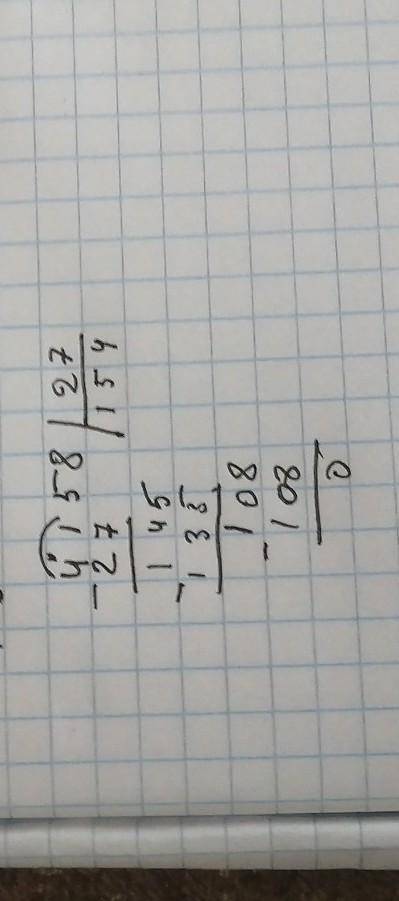 4158 | 27
- 27 | 154
145
- 135
108
- 108
0